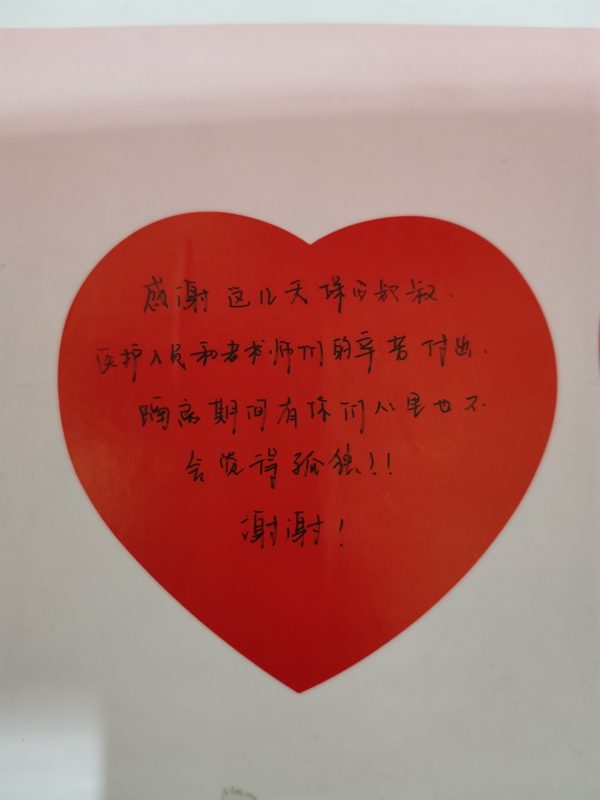 感谢这几天叔叔.
医护人员和师们的辛苦付出.
隔离期间有你们心里也不
会觉得孤独!!
谢谢!